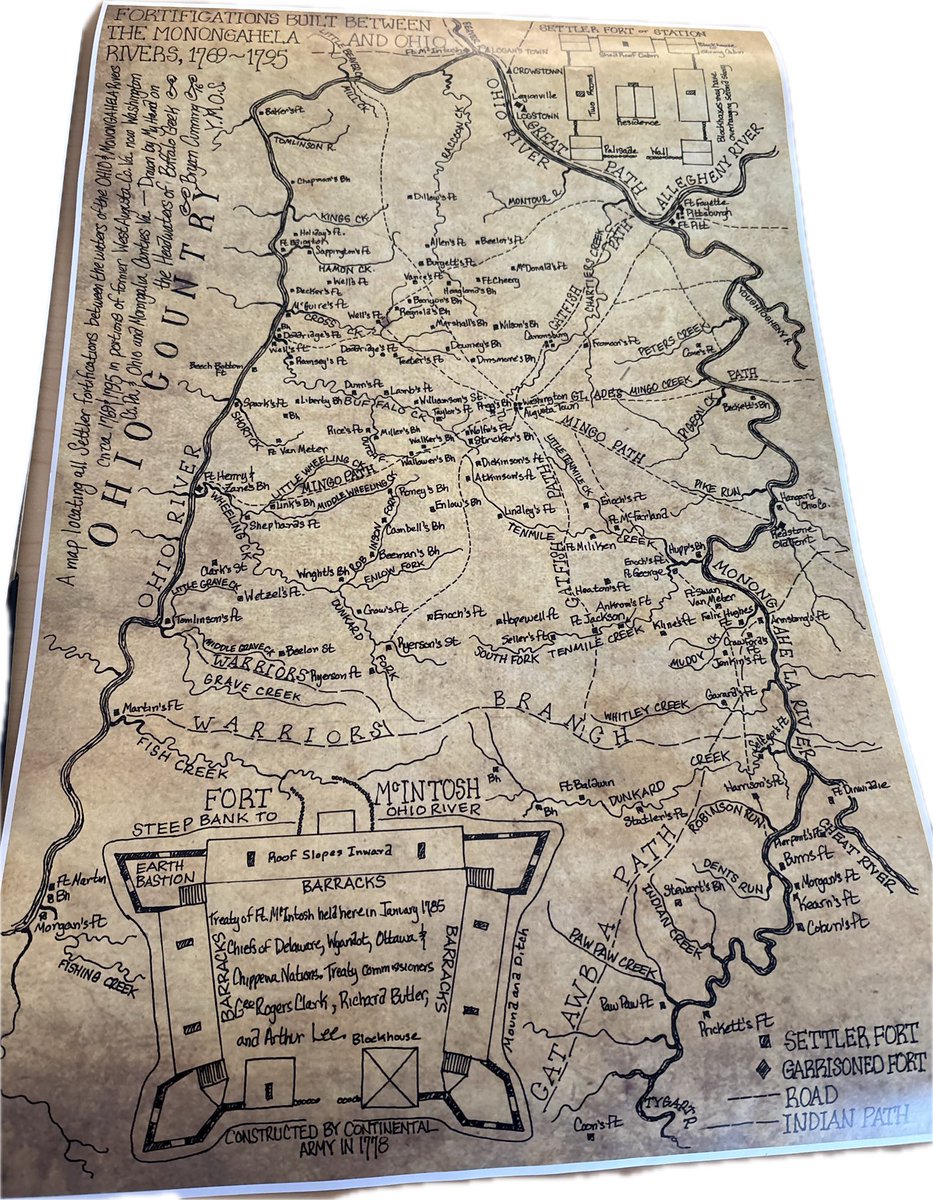 FORTIFICATIONS BUILT BETWEEN
THE MONONGAHELA AND OHIO
RIVERS, 1769~1795
A map locating all Settler fortifications between the waters of the OHIO & MONONGAHELA Rivers
Circa 1769/1795 in portions of former West Augusta Co. Va. now Washington
Co. Pa. & Ohio and Monongalia Counties Va. — Drawn by My Hand on
the Headwaters of Buffalo Creek
Bryan Cumming Y.M.O.S
OHIO COUNTRY
SETTLER FORT or STATION
Shed Roof Cabin
Two Rooms
Residence
Palisade Wall
Blockhouses may have
overhanging Second Story
Ft McIntosh
LOGAN'S TOWN
CROWSTOWN
Legionville
LOGSTOWN
OHIO RIVER
GREAT PATH
ALLEGHENY RIVER
Ft Fayette
Pittsburgh
Ft Pitt
MILL CK
RACCOON CK
Baker's ft
TOMLINSON R.
Chapman's Bh
Dilloe's ft
MONTOUR R
KINGS CK
Holiday's ft
Sappington's ft
Allen's Ft
Beelor's ft
HAMON CK
Burgett's ft
McDonald's Ft
Wells ft
Vance's ft
Ft Cherry
Hoagland's Bh
Decker's Ft
Reynold's Bh
McGuire's ft
Well's Ft
CROSS CK
Marshall's Bh
Wilson's Bh
CATFISH PATH
CHARTIERS CREEK
Canonsburg
YOUGHIOGHENY R
Froman's Ft
PETERS CREEK
Cowe's Ft
Bh
Doddridge's ft
Well's ft
Doddridge's ft
Downey's Bh
Ramsey's Ft
Teeter's Bh
Dinsmore's Bh
Beech Bottom
Ft
Dunn's ft
Lamb's ft
Spark's ft
Liberty Bh
BUFFALO CK
Williamson's St.
Taylor's Ft
Washington
Augusta Town
MINGO CREEK
PATH
PIGEON CK
Beckett's Bh
Bh
SHORT CK
Rice's Ft
Miller's Bh
Wolfe's Ft
Stricker's Bh
Walker's Bh
Wallower's Bh
MINGO PATH
Ft Van Meter
LITTLE WHEELING CK
MINGO PATH
MIDDLE WHEELING CK
Dickinson's ft
Atkinson's ft
CATFISH PATH
LITTLE TENMILE CK
PIKE RUN
OHIO RIVER
Ft Henry &
Zane's Bh
WHEELING CK
Link's Bh
Roney's Bh
Shephard's Ft
Enlow's Bh
Lindley's Ft
Enoch's Ft
Ft McFarland
Hangard
Ohio Co.
Redstone
Old Fort
Cambell's Bh
TENMILE CREEK
Ft Miliken
ROBINSON FORK
Beeman's Bh
ENLOW FORK
Wright's Bh
Clark's St
LITTLE GRAVE CK
Wetzel's Ft
DUNKARD FORK
Hupp's Bh
Enoch's ft
Ft George
CATFISH
Heaton's ft
MONONGAHELA RIVER
Ft Swan
Van Meter
Felix Hughes
Crow's Ft
Enoch's Ft
Hopewell Ft
Ankrom's Ft
Ft Jackson
Kline's Ft
Armstrong's ft
Tomlinson's ft
Seller's Ft
SOUTH FORK TENMILE CREEK
Crawford's
MUDDY CK
Jenkin's Ft
MIDDLE GRAVE CK
Beelor St
Ryerson's St
WARRIORS
Ryerson Ft
GRAVE CREEK
Garard's Ft
WHITLEY CREEK
Martin's Ft
WARRIORS BRANCH
FISH CREEK
Bh
Bh
Ft Baldwin
DUNKARD CREEK
Statler's Ft
Harrison's Ft
Ft Dinwiddie
ROBINSON RUN
CHEAT RIVER
Pierpont's Ft
DENTS RUN
Burns Ft
Stewart's Bh
Morgan's Ft
Kearn's Ft
Coburn's Ft
INDIAN CREEK
PAW PAW CREEK
CATAWBA PATH
Paw Paw Ft
Prickett's Ft
TYGART R.
Coon's Ft
Ft Martin
Bh
Morgan's Ft
FISHING CREEK
FORT McINTOSH
STEEP BANK TO OHIO RIVER
EARTH
BASTION
Roof Slopes Inward
BARRACKS
BARRACKS
BARRACKS
Treaty of Ft. McIntosh held here in January 1785
Chiefs of Delaware, Wyandot, Ottawa &
Chippewa Nations. Treaty commissioners
Geo Rogers Clark, Richard Butler,
and Arthur Lee.
Blockhouse
Mound and Ditch
CONSTRUCTED BY CONTINENTAL
ARMY IN 1778
SETTLER FORT
GARRISONED FORT
ROAD
INDIAN PATH